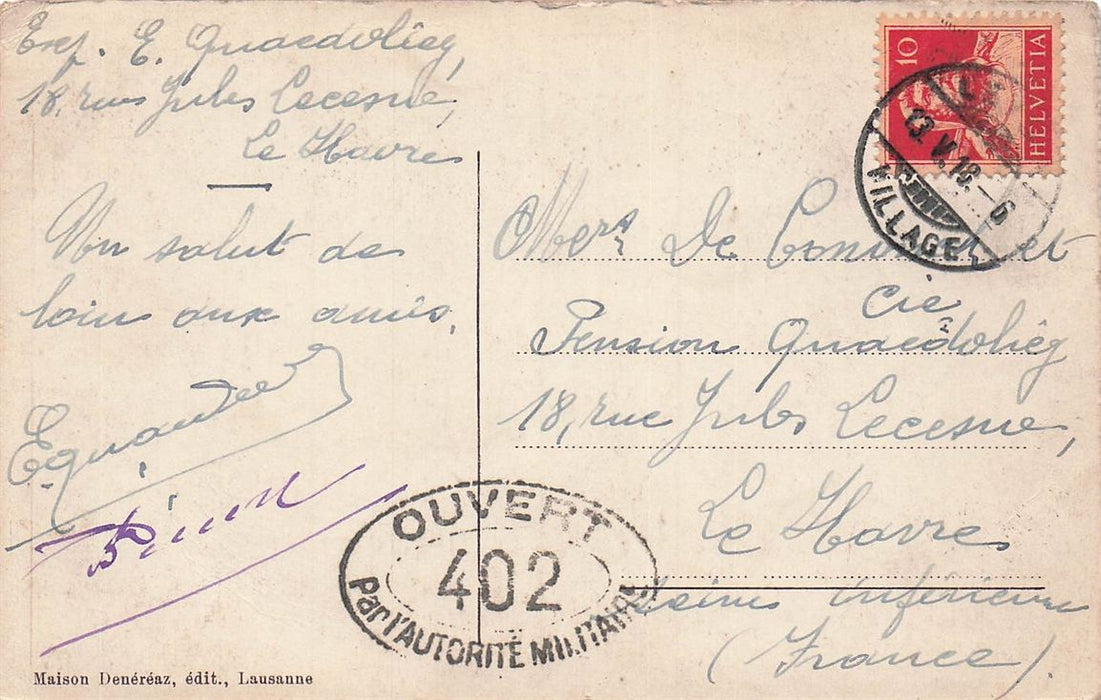 Exp. E. Quaedvlieg,
18, rue Jules Lecesne,
Le Havre
Un salut de
loin aux amis.
10
HELVETIA
13. V. 18. – 6
VILLAGE
Mers De et
Cie
Pension Quaedvlieg
18, rue Jules Lecesne,
Le Havre
Seine Inférieure
(France).
OUVERT
402
Par l'AUTORITÉ MILITAIRE
Maison Denéréaz, édit., Lausanne